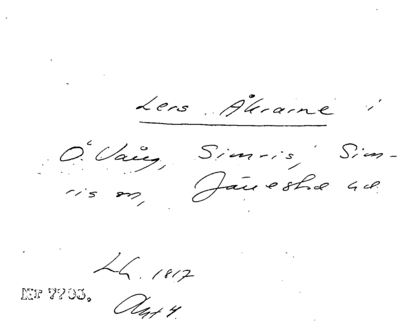 Lers Åkrarne i
Ö. Vång, Simris, Sim-
ris sn, Järrestad hd
LH. 1817
Nr 7793. Akt 4.